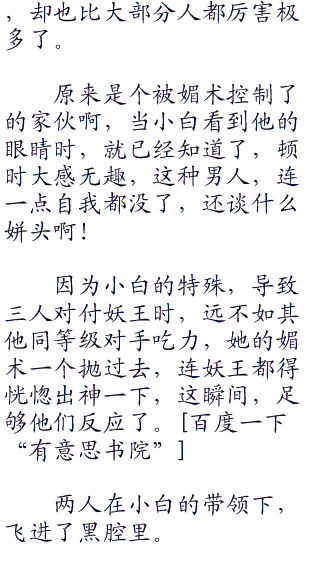 ，却也比大部分人都厉害极
多了。
原来是个被媚术控制了
的家伙啊，当小白看到他的
眼睛时，就已经知道了，顿
时大感无趣，这种男人，连
一点自我都没了，还谈什么
姘头啊！
因为小白的特殊，导致
三人对付妖王时，远不如其
他同等级对手吃力，她的媚
术一个抛过去，连妖王都得
恍惚出神一下，这瞬间，足
够他们反应了。[百度一下
“有意思书院”]
两人在小白的带领下，
飞进了黑腔里。